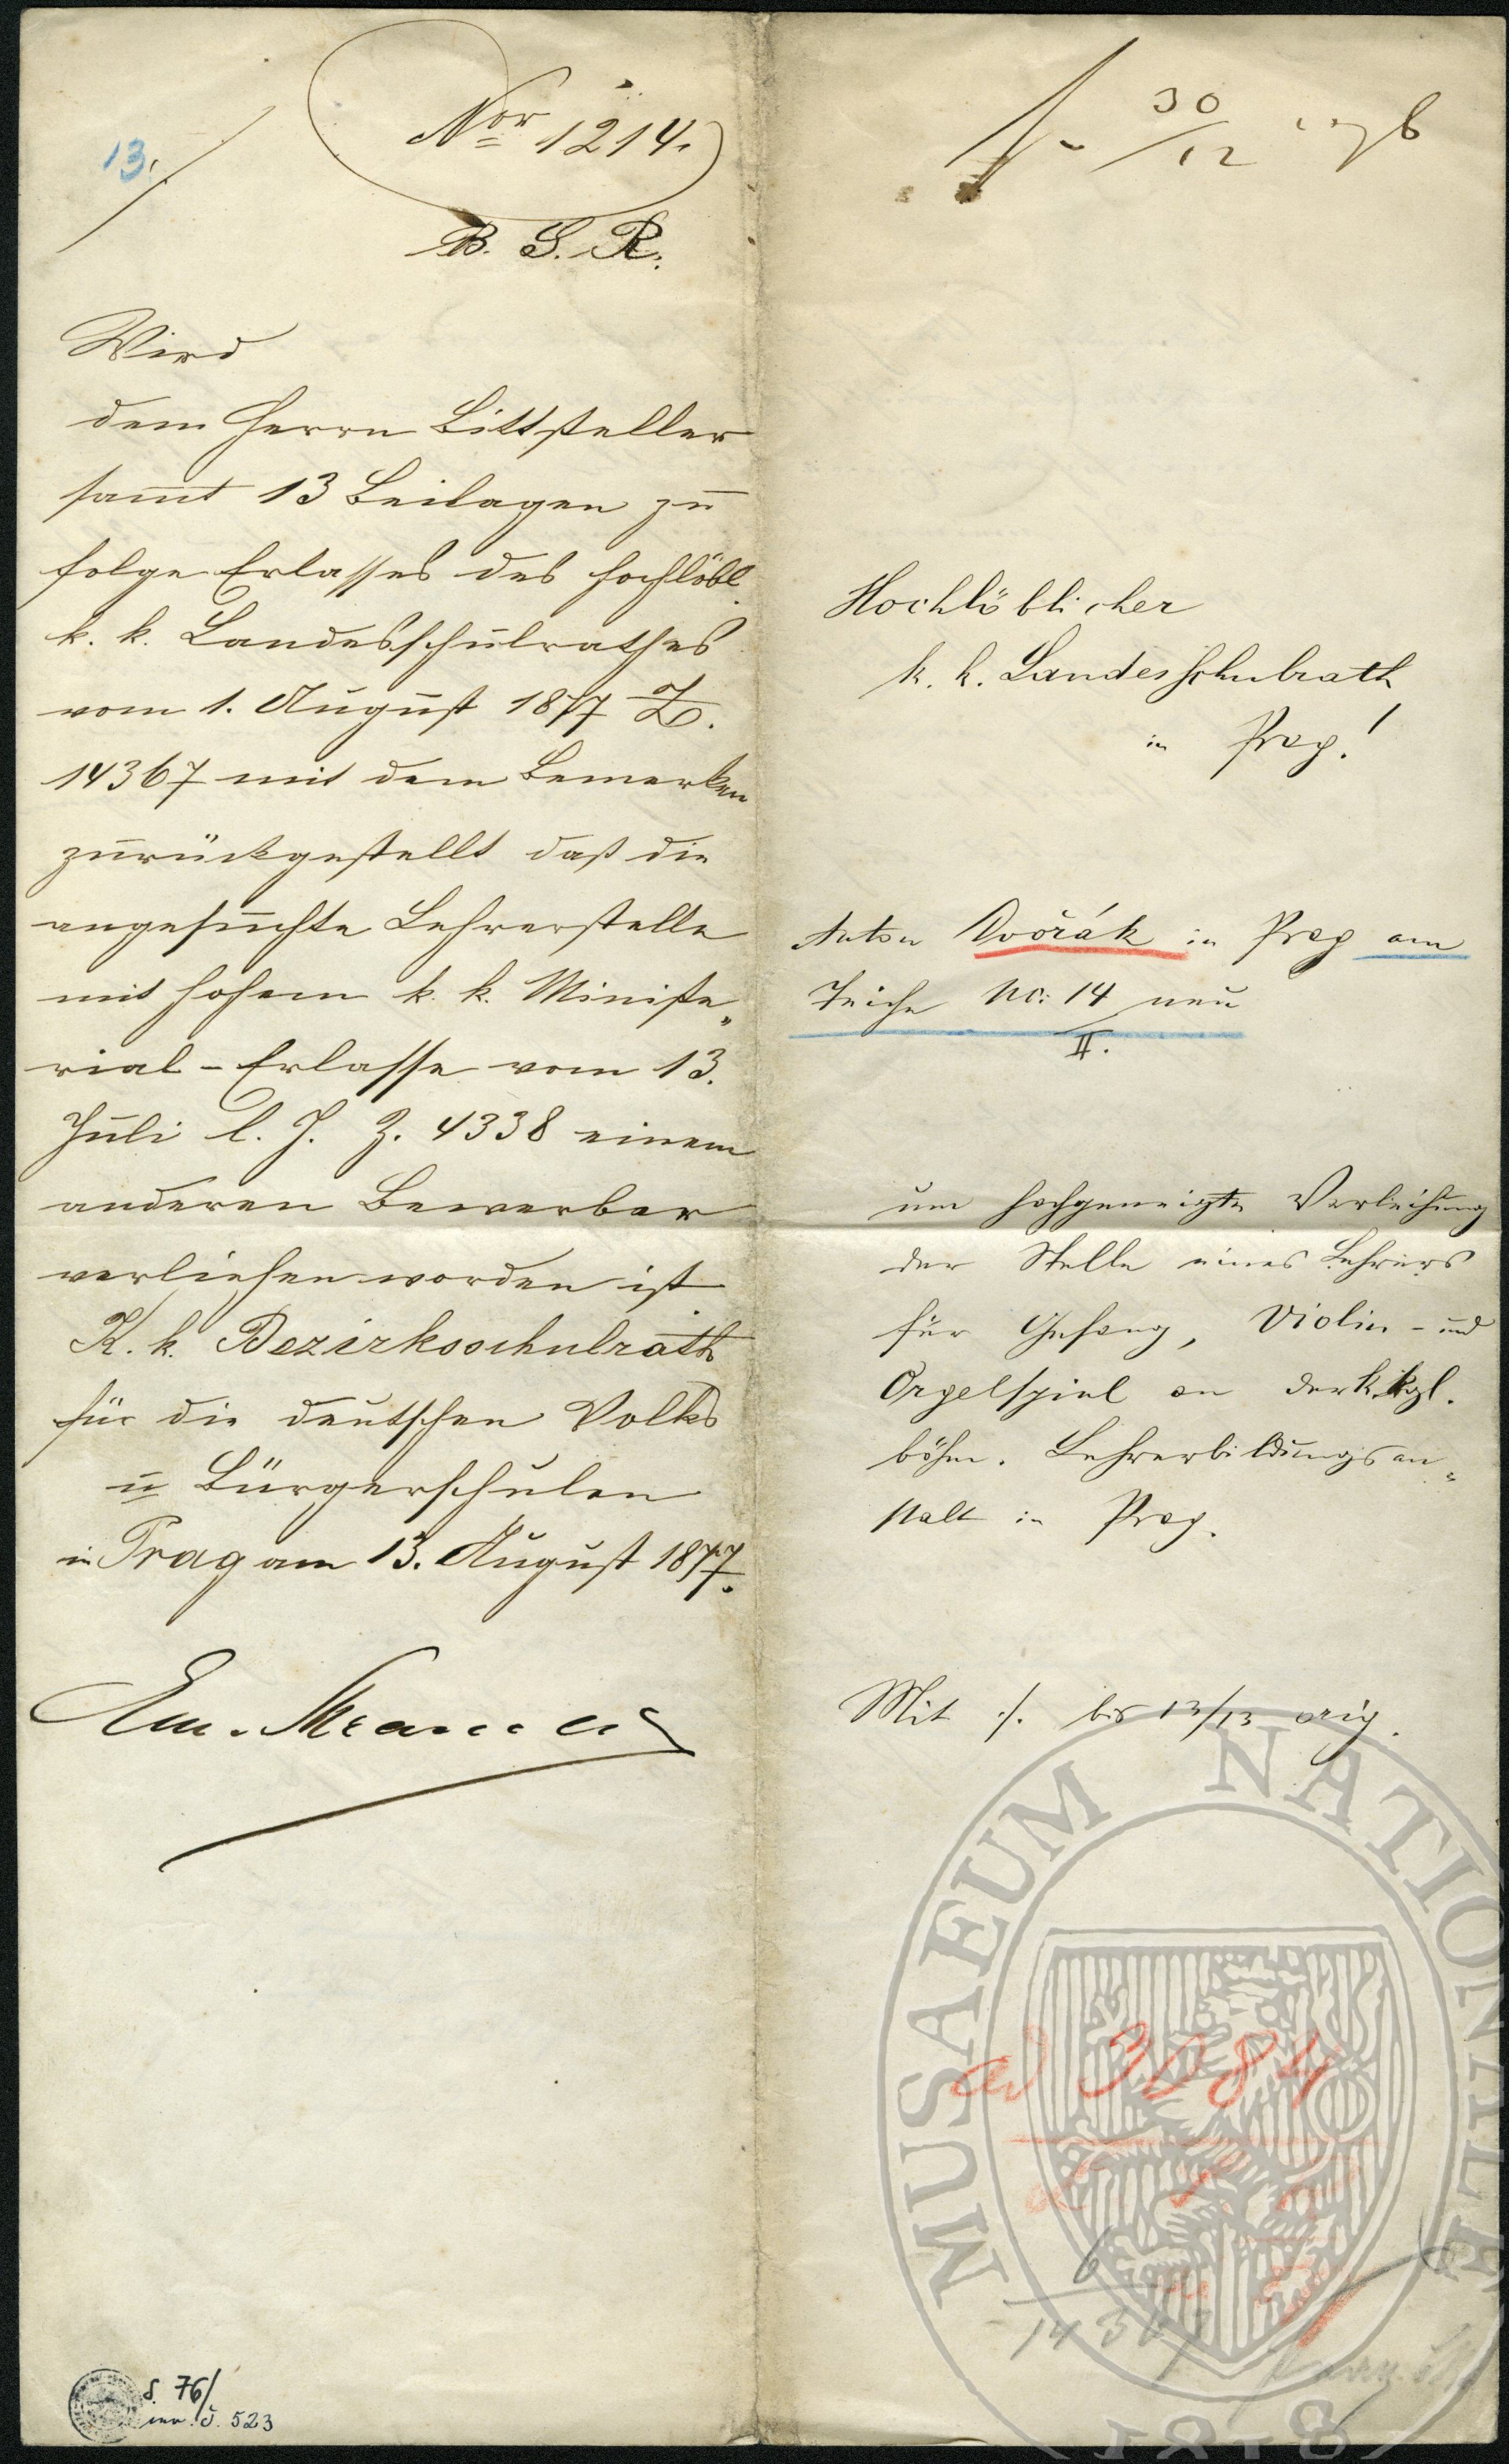 13.
Nor 1214.
B. S. R.
Wird
dem Herrn Bittsteller
sammt 13 Beilagen zu
folge Erlasses des hochlöbl.
k. k. Landesschulrathes
vom 1. August 1877 Z.
14367 mit dem Bemerken
zurückgestellt daß die
angesuchte Lehrerstelle
mit hohem k. k. Ministe„
rial-Erlasse vom 13.
Juli l. J. Z. 4338 einem
anderen Bewerber
verliehen worden ist
K. k. Bezirksschulrath
für die deutschen Volks
u Bürgerschulen
in Prag am 13. August 1877.
30/12
Hochlöblicher
k. k. Landesschulrath
in Prag!
Anton Dvořák in Prag am
Teiche No: 14 neu
II.
um hochgeneigte Verleihung
der Stelle eines Lehrers
für Gesang, Violin- und
Orgelspiel an der k. kgl.
böhm. Lehrerbildungsan„
stalt in Prag.
Mit ./. bis 13/13 orig.
ad 3084
6
14367
S. 76/
inv. č. 523
MUSAEUM NATIONALE
1818